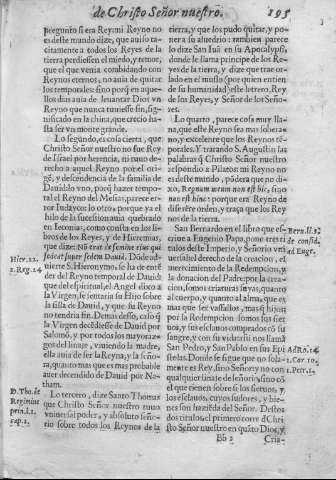 de Christo Señor nuestro. 195
pregunto si era Rey: mi Reyno no
es deste mundo dize, que auiso ta-
citamente a todos los Reyes de la
tierra perdiessen el miedo, y temor,
que el que venia combidando con
Reynos eternos, no auia de quitar
los temporales: sino porq̃ en aque-
llos dias auia de leuantar Dios vn
Reyno que nunca tuuiesse fin, sig-
nificado en la china, que crecio ha-
sta ser vn monte grande.
Lo segundo, es cosa cierta, que
Christo Señor nuestro no fue Rey
de Israel por herencia, ni tuuo dere-
cho a aquel Reyno por el ori-
gē, y descendencia de la familia de
Dauid: lo vno, porq̃ hazer tempo-
ral el Reyno del Messias, parece er-
ror Iudayco: lo otro, porque ya el
hilo de la sucession auia quebrado
en Ieconias, como consta en los li-
bros de los Reyes, y de Hieremias,
que dize: Nō erat de semine eius qui
sedeat super sedem Dauid. Dōde ad-
uierte S. Hieronymo, se ha de entē-
der del Reyno temporal de Dauid:
que del espiritual, el Angel dixo a
la Virgen, se sentaria su Hijo sobre
la silla de Dauid, y que su Reyno
no tendria fin. Demas desso, caso q̃
la Virgen decēdiesse de Dauid por
Salomō, y por todos los mayoraz-
gos del linage, viniendo la madre,
ella auia de ser la Reyna, y la seño-
ra, quanto mas que es mas probable
auer decendido de Dauid por Na-
tham.
Lo tercero, dize Santo Thomas
que Christo Señor nuestro tuuo
vniuersal poder, y absoluto seño-
rio sobre todos los Reynos de la
Hier. 22.
2. Reg. 24
D. Tho. de
Regimine
prin. l. 1.
cap. 1.
tierra, y que los pudo quitar, y po-
ner a su aluedrio: tambien parece
lo dize San Iuā en su Apocalypsi,
donde le llama principe de los Re-
yes de la tierra, y dize que trae or-
lado en el muslo (por quien entien
de su humanidad) este letrero, Rey
de los Reyes, y Señor de los Seño-
res.
Lo quarto, parece cosa muy lla-
na, que este Reyno sea mas sobera-
no, y excelente que los Reynos tē-
porales. Y tratando S. Augustin las
palabras q̃ Christo Señor nuestro
respondio a Pilatos: mi Reyno no
es deste mundo, põdera que no di-
xo, Regnum meum non est hic, sino
non est hinc: porque era Reyno de
diferēte orden, y traça que los Rey
nos de la tierra.
San Bernardo en el libro que es-
criue a Eugenio Papa, pone tres ti-
tulos deste Imperio, y Señorio vni
uersal: el derecho de la creacion, el
merecimiento de la Redempcion, y
la donacion del Padre: por la crea-
cion, somos criaturas suyas, quanto
al cuerpo, y quanto al alma, que es
mas que ser vassallos, mas q̃ hijos:
por la Redempcion somos sus sier-
uos, y sus esclauos comprados cō su
sangre, y con su vida: assi nos llama
San Pedro, y San Pablo en sus Epi
stolas. Donde se sigue que no sola-
mente es Rey, sino Señor: y no con
qualquier linage de señorio, sino cō
el que tienen sobre si los sieruos, y
los esclauos, cuyos sudores, y bie-
nes son haziēda del Señor. Destos
dos titulos, el primero corre d̃ Chri
sto Señor nuestro en quāto Dios, y
Bern. li. 3.
de consid.
ad Euge.
1. Cor. 10.
1. Petr. 1.
Bb 2 Cria-